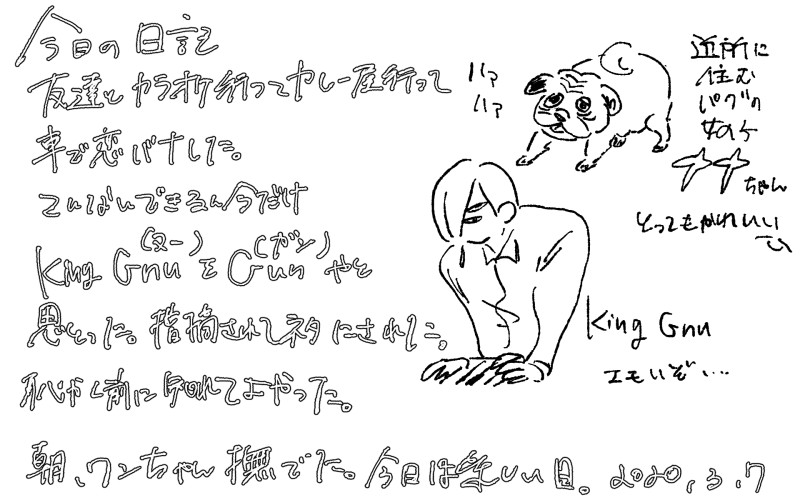 今日の日記
友達とカラオケ行ってカレー屋行って
車で恋バナした。
こんなんできるん今だけ
King Gnu(ヌー)をGun(ガン)やと
思とった。指摘されてネタにされた。
恥かく前に知れてよかった。
朝、ワンちゃん撫でた。今日は楽しい日。2020.3.7
ハァ
ハァ
近所に
住む
パグの
ナナ
ちゃん
とってもかわいい
King Gnu
エモいぞ…